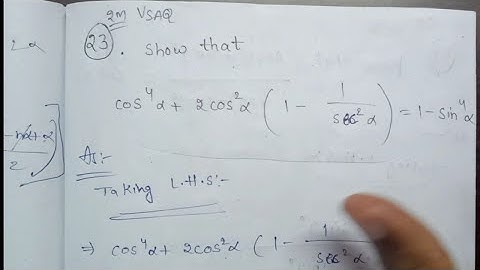 2m VSAQ
23. Show that
2α
cos⁴α + 2cos²α (1 - 1/sec²α) = 1 - sin⁴α
As:-
Taking L.H.S:-
⇒ cos⁴α + 2cos²α (1 - 1/sec²α